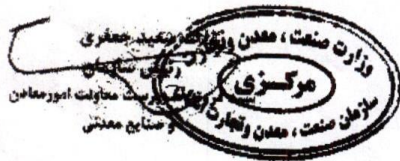 وزارت صنعت، معدن و تجارت
مرکزی
سازمان صنعت، معدن و تجارت
سعید جعفری
رئیس سازمان
سرپرست معاونت امور معادن
و صنایع معدنی